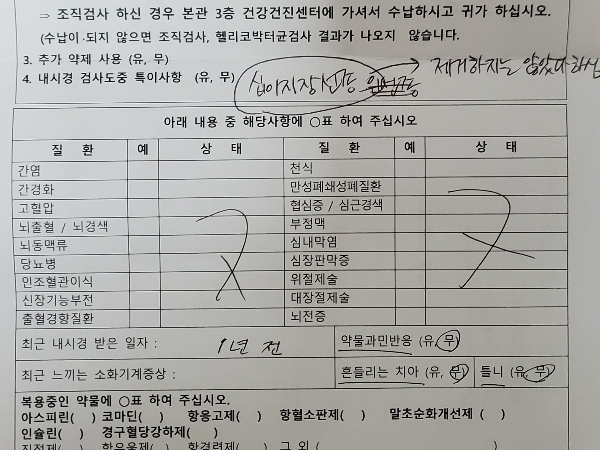 ⇒ 조직검사 하신 경우 본관 3층 건강건진센터에 가셔서 수납하시고 귀가 하십시오.
(수납이 되지 않으면 조직검사, 헬리코박터균검사 결과가 나오지 않습니다.
3. 추가 약제 사용 (유, 무)
4. 내시경 검사도중 특이사항 (유, 무) 십이지장선종 → 제거하지는 않았다하심
아래 내용 중 해당사항에 ○표 하여 주십시오
질 환 예 상 태 질 환 예 상 태
간염 천식
간경화 만성폐쇄성폐질환
고혈압 협심증 / 심근경색
뇌출혈 / 뇌경색 부정맥
뇌동맥류 심내막염
당뇨병 심장판막증
인조혈관이식 위절제술
신장기능부전 대장절제술
출혈경향질환 뇌전증
최근 내시경 받은 일자 : 1년 전 약물과민반응 (유, 무)
최근 느끼는 소화기계증상 : 흔들리는 치아 (유, 무) 틀니 (유, 무)
복용중인 약물에 ○표 하여 주십시오.
아스피린( ) 코마딘( ) 항응고제( ) 항혈소판제( ) 말초순화개선제 ( )
인슐린( ) 경구혈당강하제( )
진정제( ) 항우울제( ) 항경련제( ) 그 외 ( )